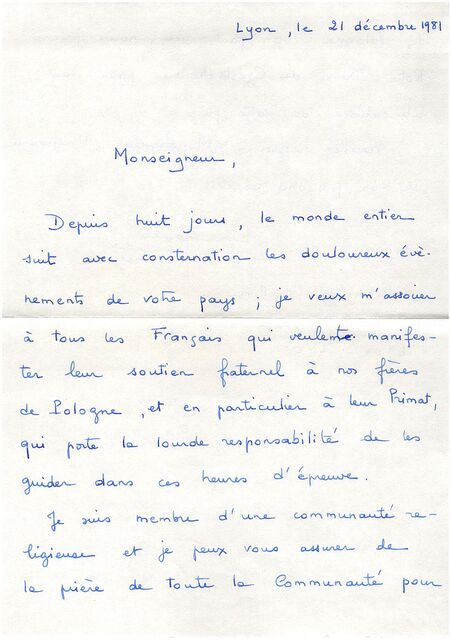 Lyon, le 21 décembre 1981
Monseigneur,
Depuis huit jours, le monde entier
suit avec consternation les douloureux évè-
nements de votre pays ; je veux m'associer
à tous les Français qui veulent manifes-
ter leur soutien fraternel à nos frères
de Pologne, et en particulier à leur Primat,
qui porte la lourde responsabilité de les
guider dans ces heures d'épreuve.
Je suis membre d'une communauté re-
ligieuse et je peux vous assurer de
la prière de toute la Communauté pour